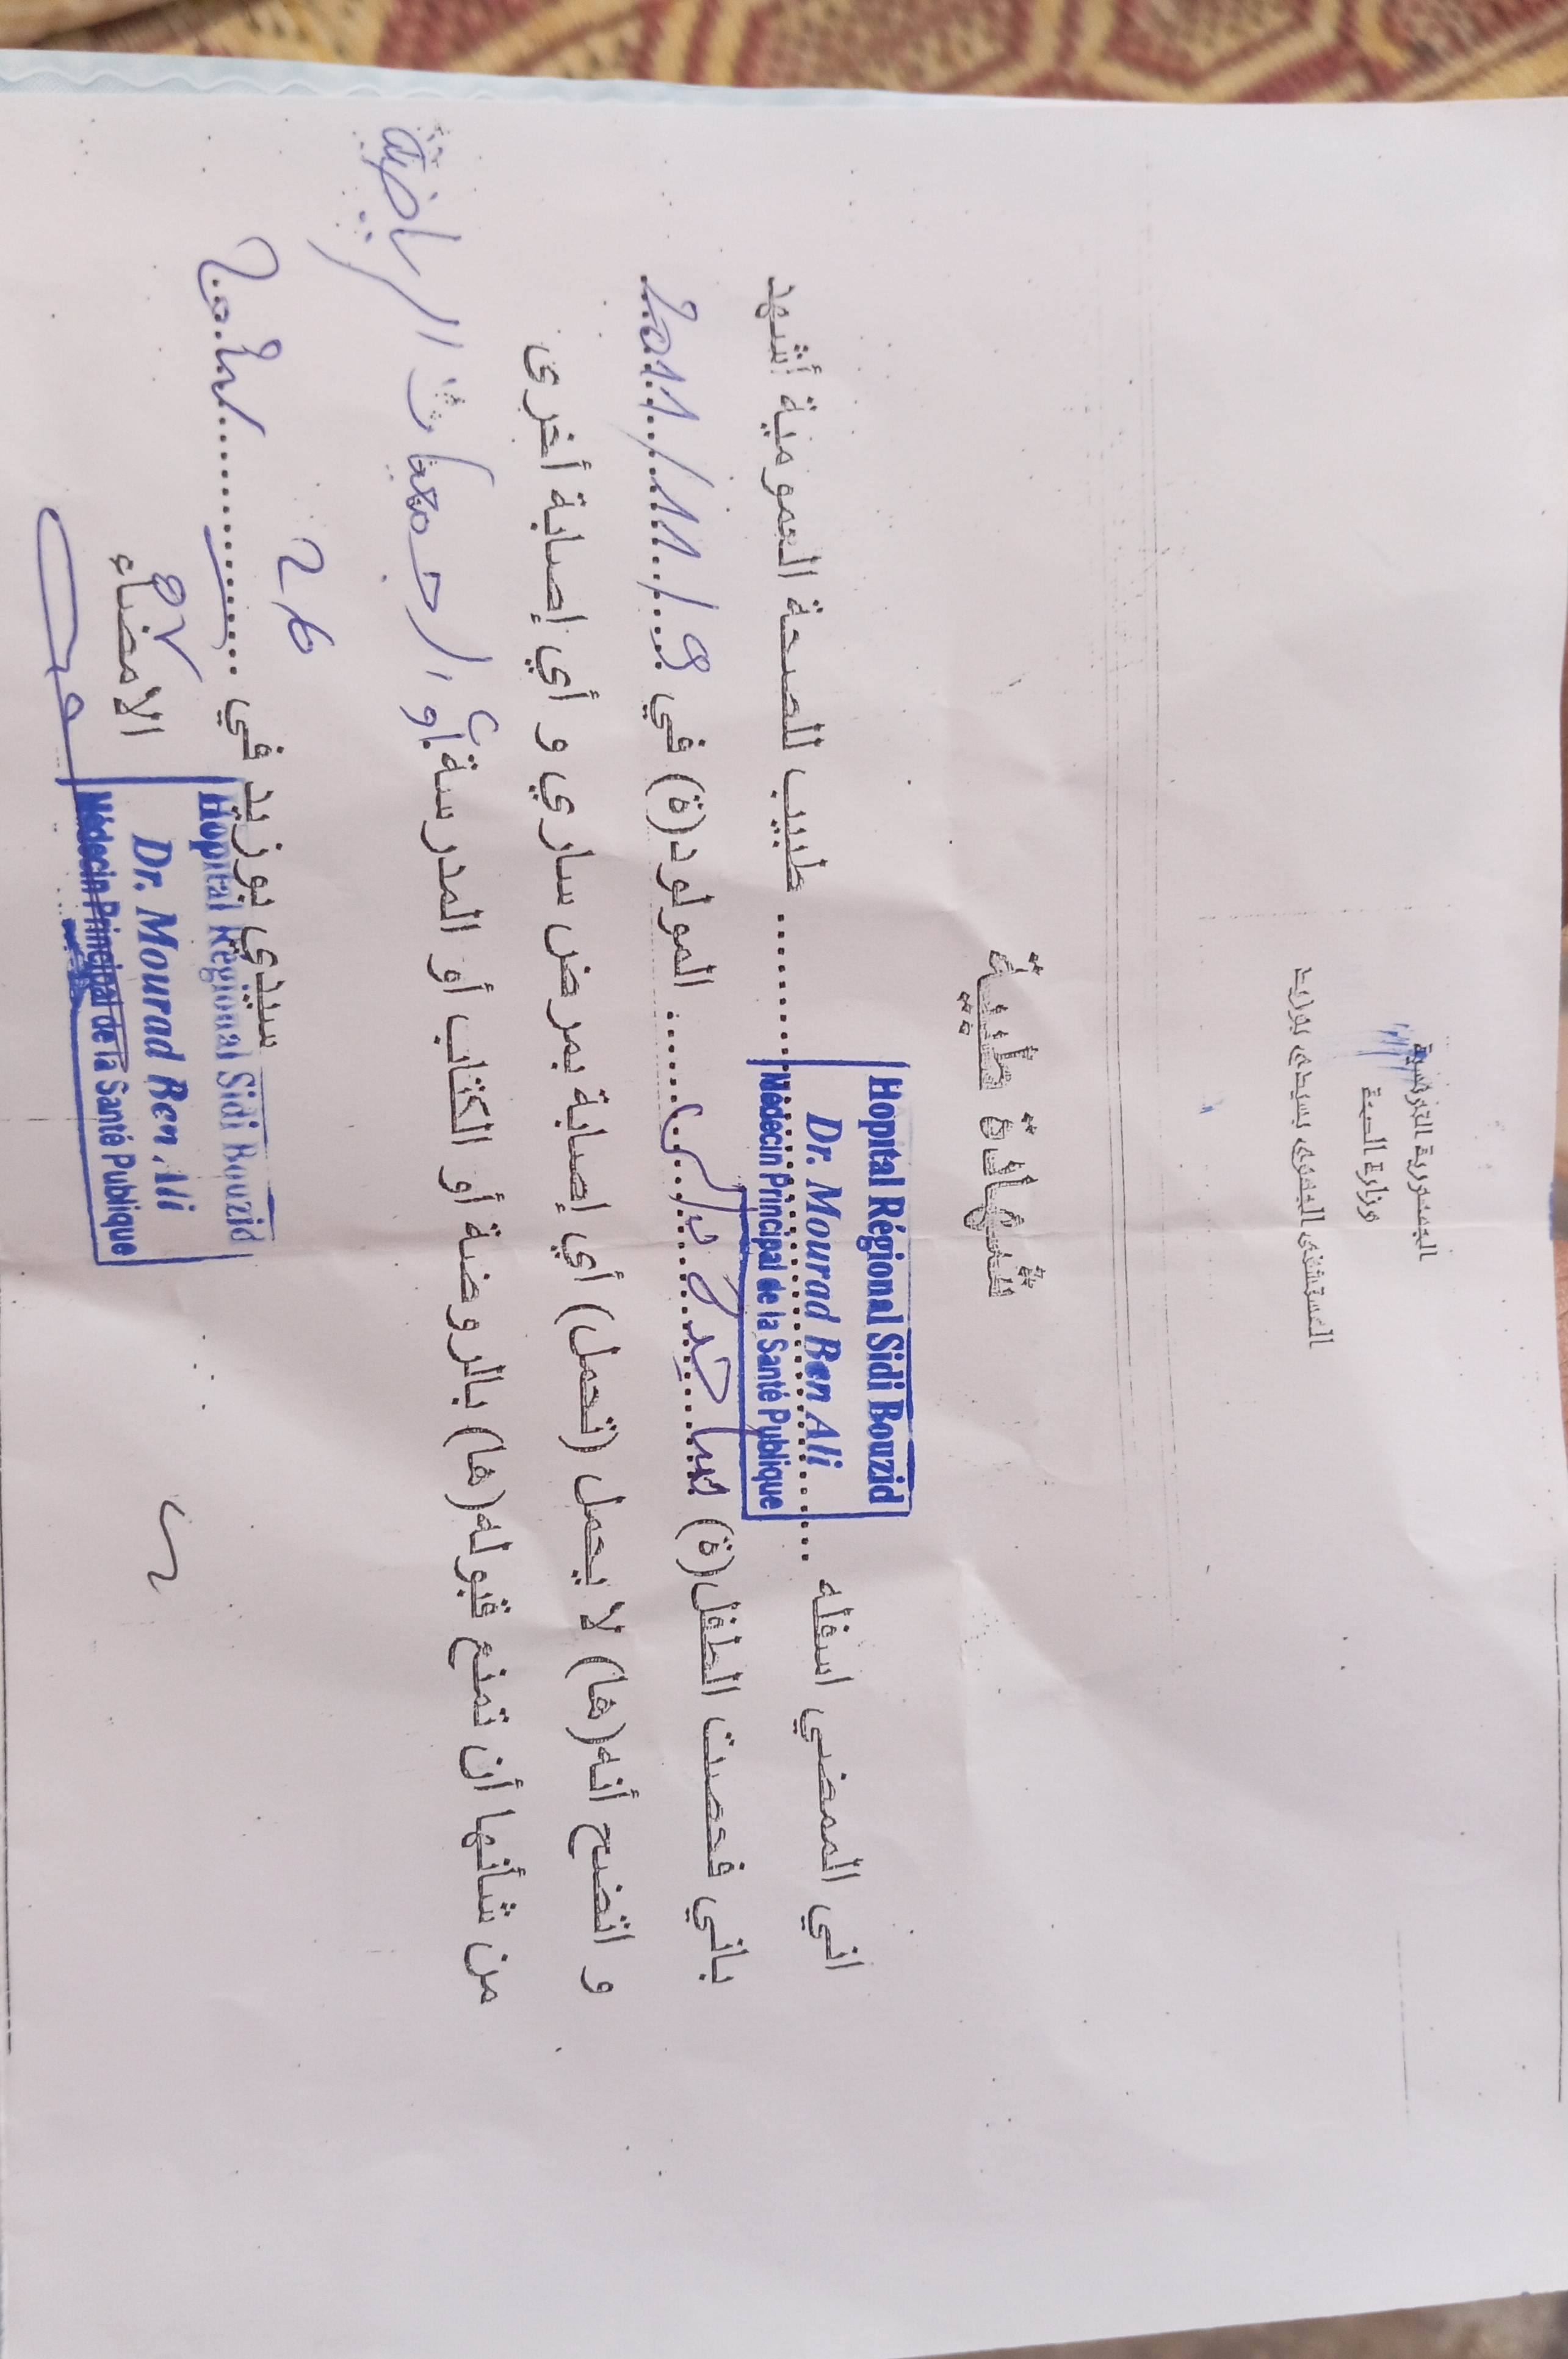 الجمهورية التونسية
وزارة الصحة
المستشفى الجهوي بسيدي بوزيد
شهادة طبية
Hopital Régional Sidi Bouzid
Dr. Mourad Ben Ali
Médecin Principal de la Santé Publique
اني الممضي اسفله ........ طبيب للصحة العمومية أشهد
باني فحصت الطفل(ة) ........ المولود(ة) في 9/11/2011
و اتضح أنه(ها) لا يحمل (تحمل) أي إصابة بمرض ساري و أي إصابة أخرى
من شأنها أن تمنع قبوله(ها) بالروضة أو الكتاب أو المدرسة أو الجمعيات الرياضية
سيدي بوزيد في
الامضاء
Hopital Régional Sidi Bouzid
Dr. Mourad Ben Ali
Médecin Principal de la Santé Publique